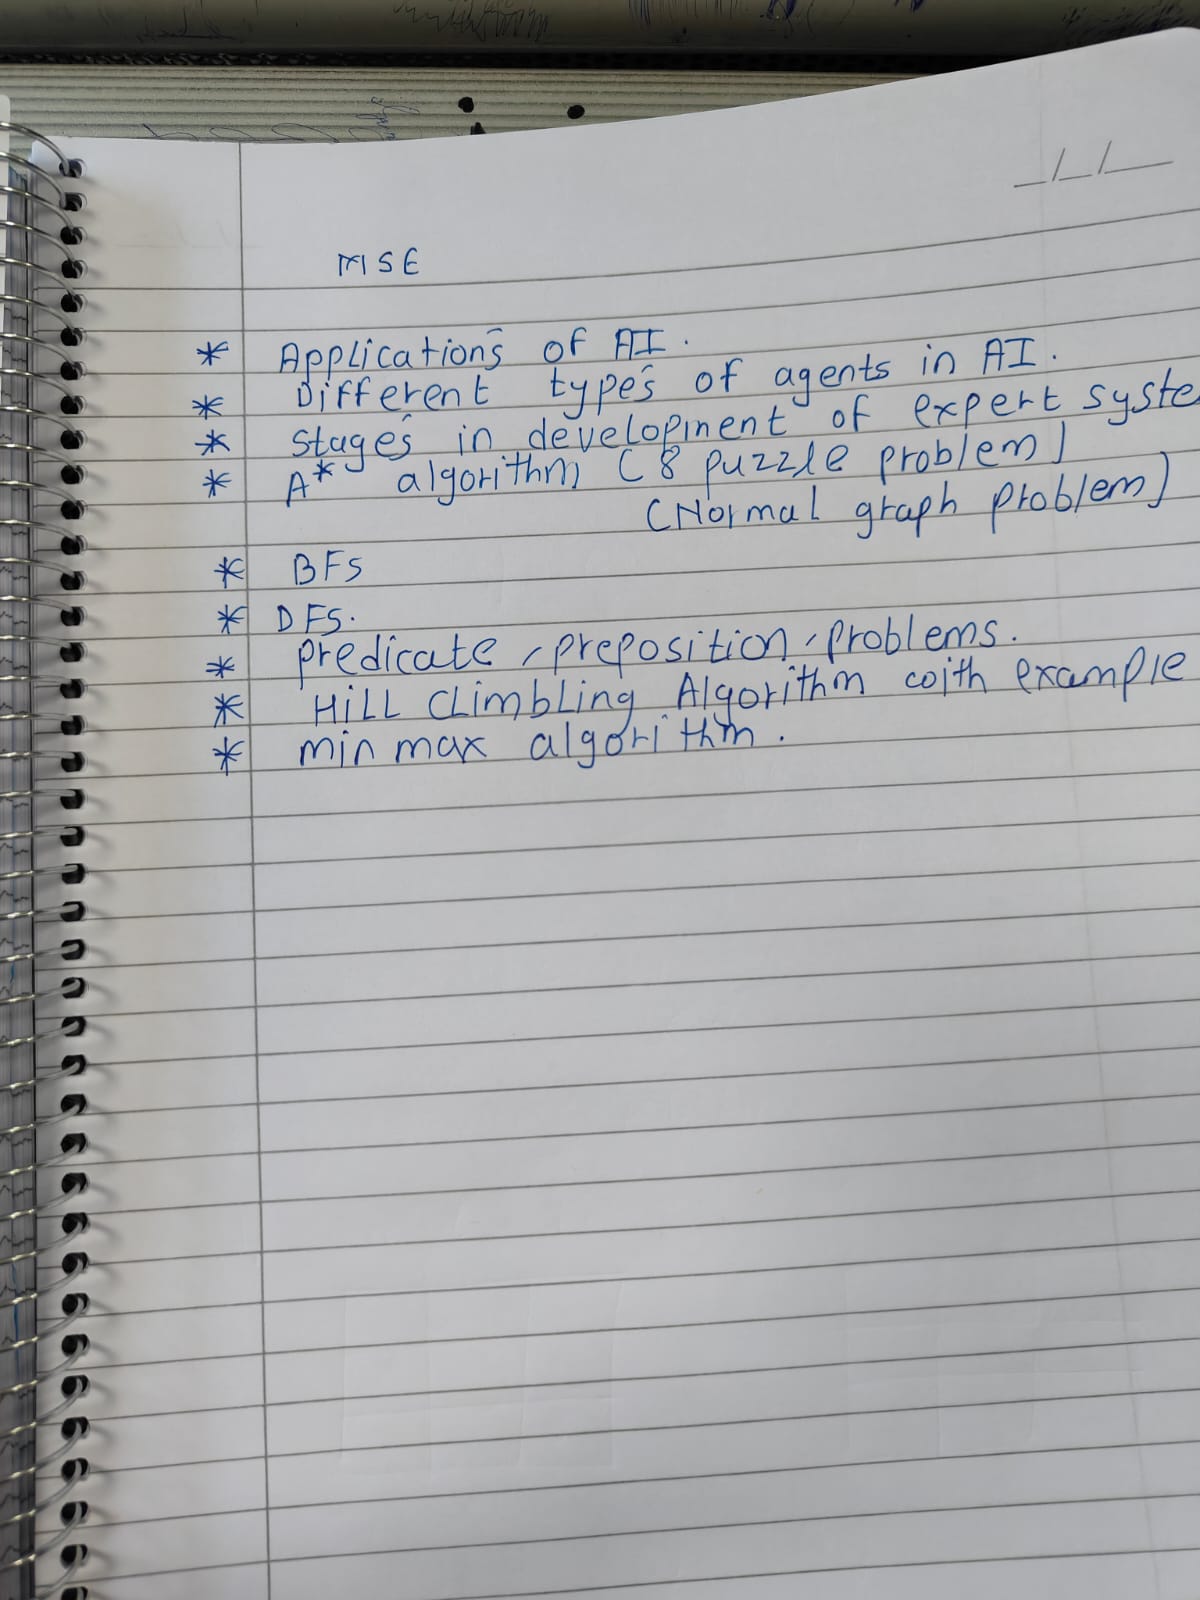 MSE
* Applications of AI.
* Different types of agents in AI.
* Stages in development of expert syste
* A* algorithm (8 puzzle problem)
(Normal graph problem)
* BFS
* DFS.
* predicate, preposition, problems.
* HiLL CLimbLing Algorithm with example
* min max algorithm.